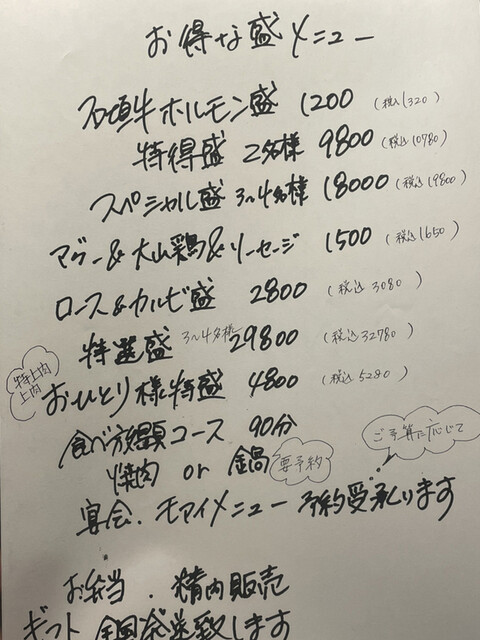 お得な盛メニュー
石垣牛ホルモン盛 1200 (税込1320)
特得盛 2名様 9800 (税込10780)
スペシャル盛 3〜4名様 18000 (税込19800)
アグー&大山鶏&ソーセージ 1500 (税込1650)
ロース&カルビ盛 2800 (税込3080)
特選盛 3〜4名様 29800 (税込32780)
特上肉
上肉
おひとり様特盛 4800 (税込5280)
食べ放題コース 90分
焼肉 or 鍋 要予約
ご予算に応じて
宴会.モアイメニュー 予約受承ります
お弁当.精肉販売
ギフト 全国発送致します